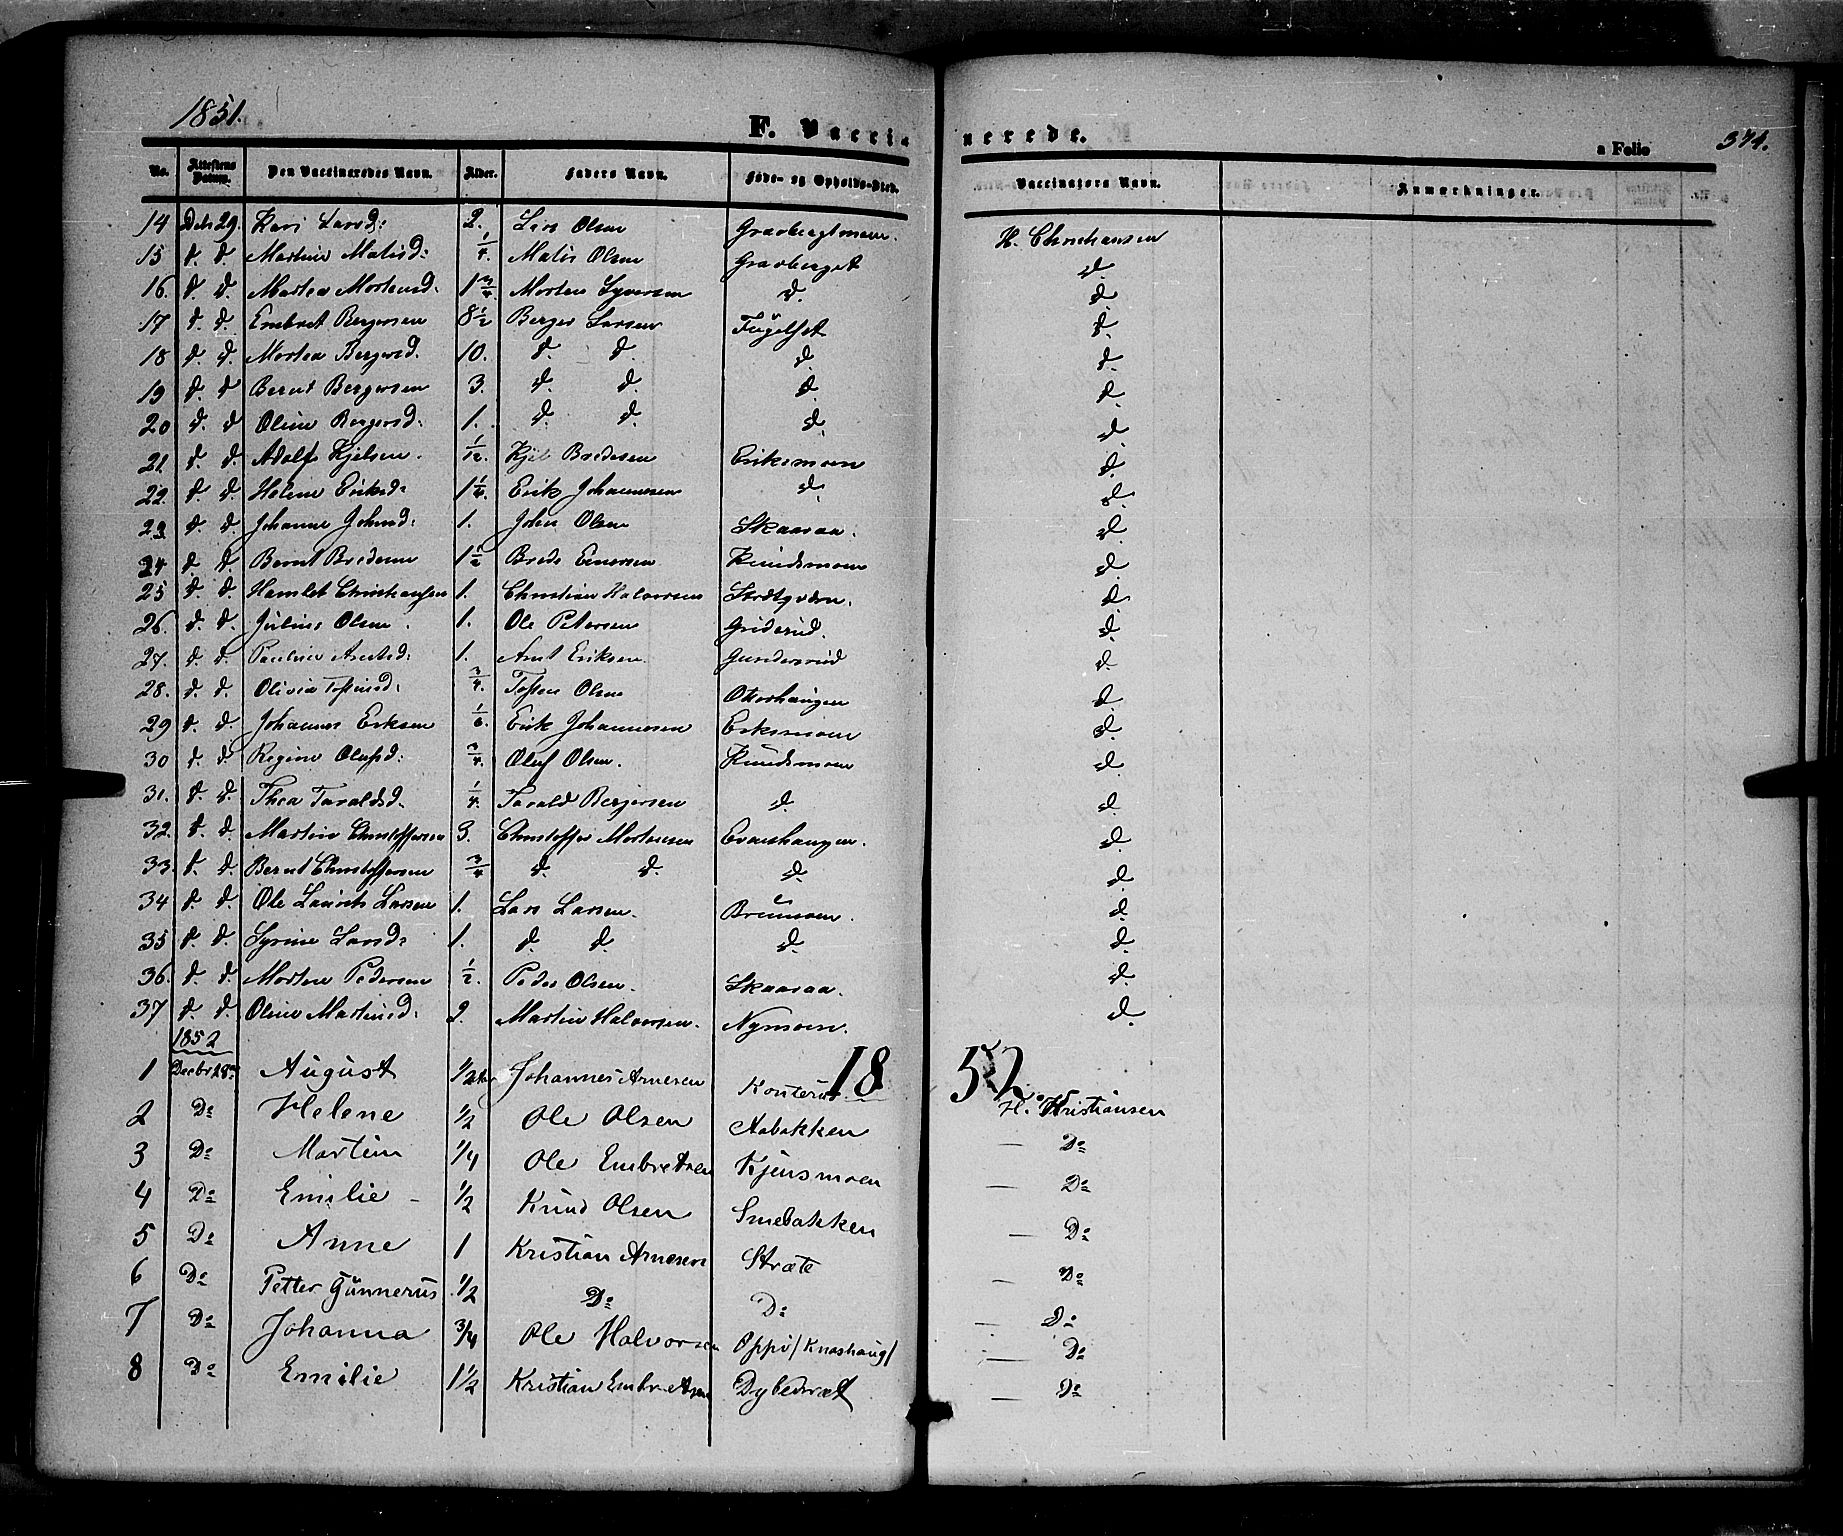 1851.
F. Vaccinerede.
a Folio 374.
No. Attestens Datum. Den Vaccineredes Navn. Alder. Faders Navn. Føde- og Opholds-Sted. Vaccinators Navn. Anmærkninger.
14 Decb 29. Kari Larsd: 2. Lars Olsen Gravbergtmoen. H. Christiansen
15 d. d. Martine Matisd: 1/4 Matis Olsen Gravberget d.
16. d. d. Martea Mortensd. 1 3/4. Morten Syversen d. d.
17 d. d. Embret Bergersen 8 1/2 Berger Larsen Fuğelset d.
18 d. d. Mortea Bergersd. 10. d. d. d. d.
19 d. d Bernt Bergersen 3. d. d. d. d.
20 d. d Oline Bergersd. 1. d. d. d. d.
21. d. d. Adolf Kjelsen. 1/12. Kjel Bredesen Eriksmoen d.
22. d. d. Helene Eriksd: 1 1/6. Erik Johannesen d. d.
23. d. d. Johanne Johnsd: 1. John Olsen Skaaraa. d.
24 d. d Bernt Bredesen 1 1/2 Brede Einersen Knudsmoen d.
25 d. d. Hamlet Christiansen 1. Christian Halvorsen d.
26. d. d. Julius Olsen. 1. Ole Petersen Griderud. d.
27. d. d. Pauline Arntsd: 1. Arnt Eriksen. Gundersrud d.
28. d. d. Olivia Tostensd: 3/4. Tosten Olsen Otterhaugen d.
29 d. d. Johannes Eriksen 1/6. Erik Johannesen Eriksmoen d.
30 d. d Regine Olufsd: 3/4. Oluf Olsen. Knudsmoen d.
31. d. d. Thea Taraldsd. 1/4. Tarald Bergersen d. d.
32. d. d. Martin Christoffersen 3. Christoffer Mortensen Evenshaugen. d.
33. d. d. Bernt Christoffersen 3/4 d. d. d. d.
34 d. d Ole Laurits Larsen 1. Lars Larsen. Brumoen. d.
35 d. d. Syrine Larsd: 1. d. d. d. d.
36. d. d. Morten Pedersen 1/2. Peder Olsen. Skaaraa. d.
37 d. d. Oline Martinsd: 2. Martin Halvorsen. Nymoen. d.
1852
1852
1 Decbr 28de August 1/2 Aar Johannes Arnesen Konterud H. Kristiansen
2 Do Helene 1/2 Ole Olsen Aabakken — Do
3 Do Martin 1/4 Ole Embretsen Kjensmoen — Do
4 Do Emilie - 1/2 Knud Olsen Smebakken — Do
5 Do Anne 1 Kristian Arnesen Stræte — Do
6 Do Petter Gunnerus 1/2 Do Do — Do
7 Do Johanna 3/4 Ole Halvorsen Oppi/Knashaug/ — Do
8 Do Emilie 1 1/2 Kristian Embretsen Dybedræt — Do